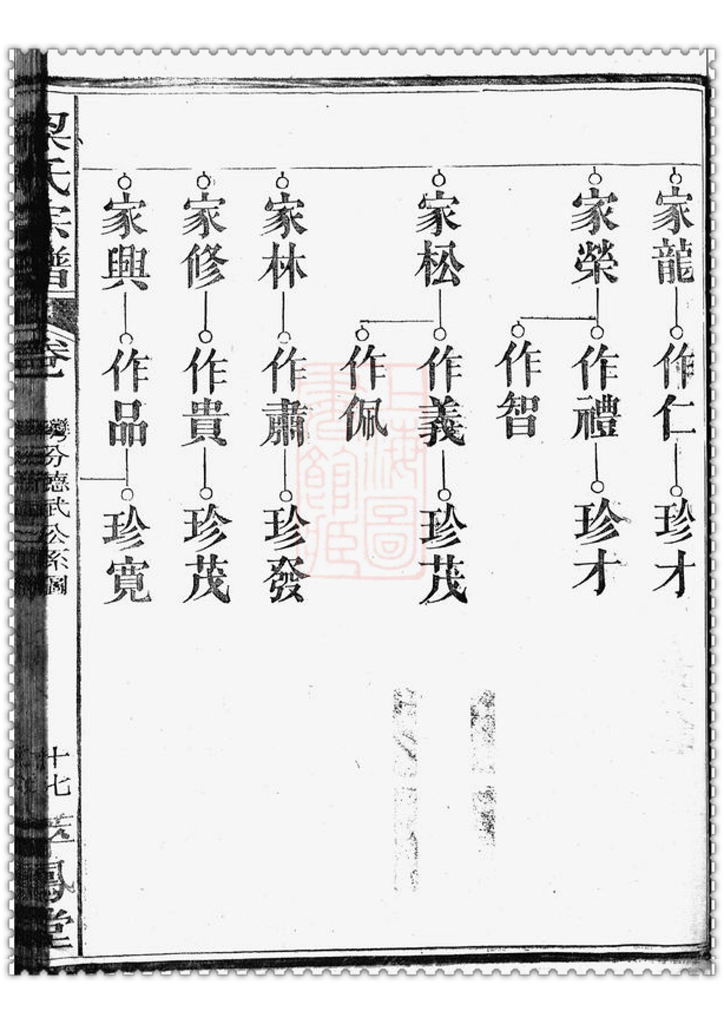 家龍
作仁
珍才
家榮
作禮
珍才
作智
家松
作義
珍茂
作佩
家林
作肅
珍發
家修
作貴
珍茂
家興
作品
珍寬
氏宗譜
卷
分德武公系圖
十七
鳳堂